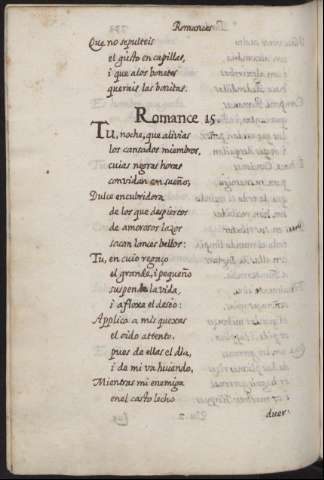 Romances
Que no sepulteis
el gusto en capillas,
i que a los bonetes
querais las bonitas.
Romance 15.
Tu, noche, que alivias
los cansados miembros,
cuias negras horas
convidan en sueño,
Dulce encubridora
de los que despiertos
de amorosos lazos
sacan lances bellos:
Tu, en cuio regaço
el grande, i pequeño
suspende la vida,
i afloxa el deseo:
Aplica a mis quexas
el oido attento,
pues de ellas el dia,
i de mi va huiendo,
Mientras mi enemiga
en el casto lecho
duer-